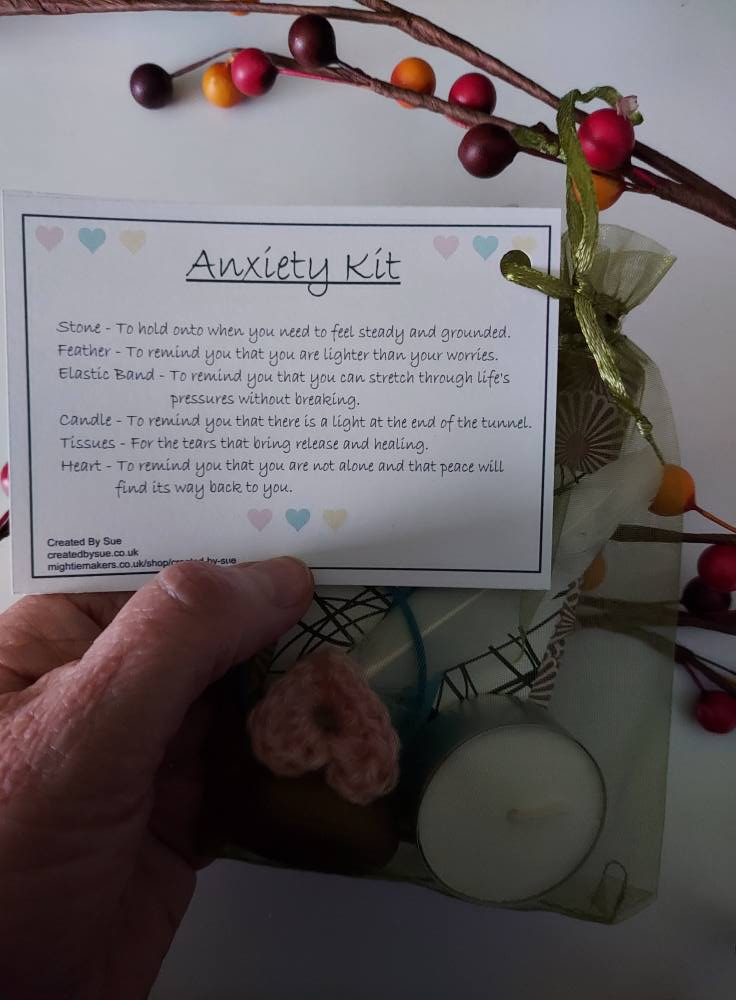 Anxiety Kit
Stone - To hold onto when you need to feel steady and grounded.
Feather - To remind you that you are lighter than your worries.
Elastic Band - To remind you that you can stretch through life's
pressures without breaking.
Candle - To remind you that there is a light at the end of the tunnel.
Tissues - For the tears that bring release and healing.
Heart - To remind you that you are not alone and that peace will
find its way back to you.
Created By Sue
createdbysue.co.uk
mightiemakers.co.uk/shop/created-by-sue